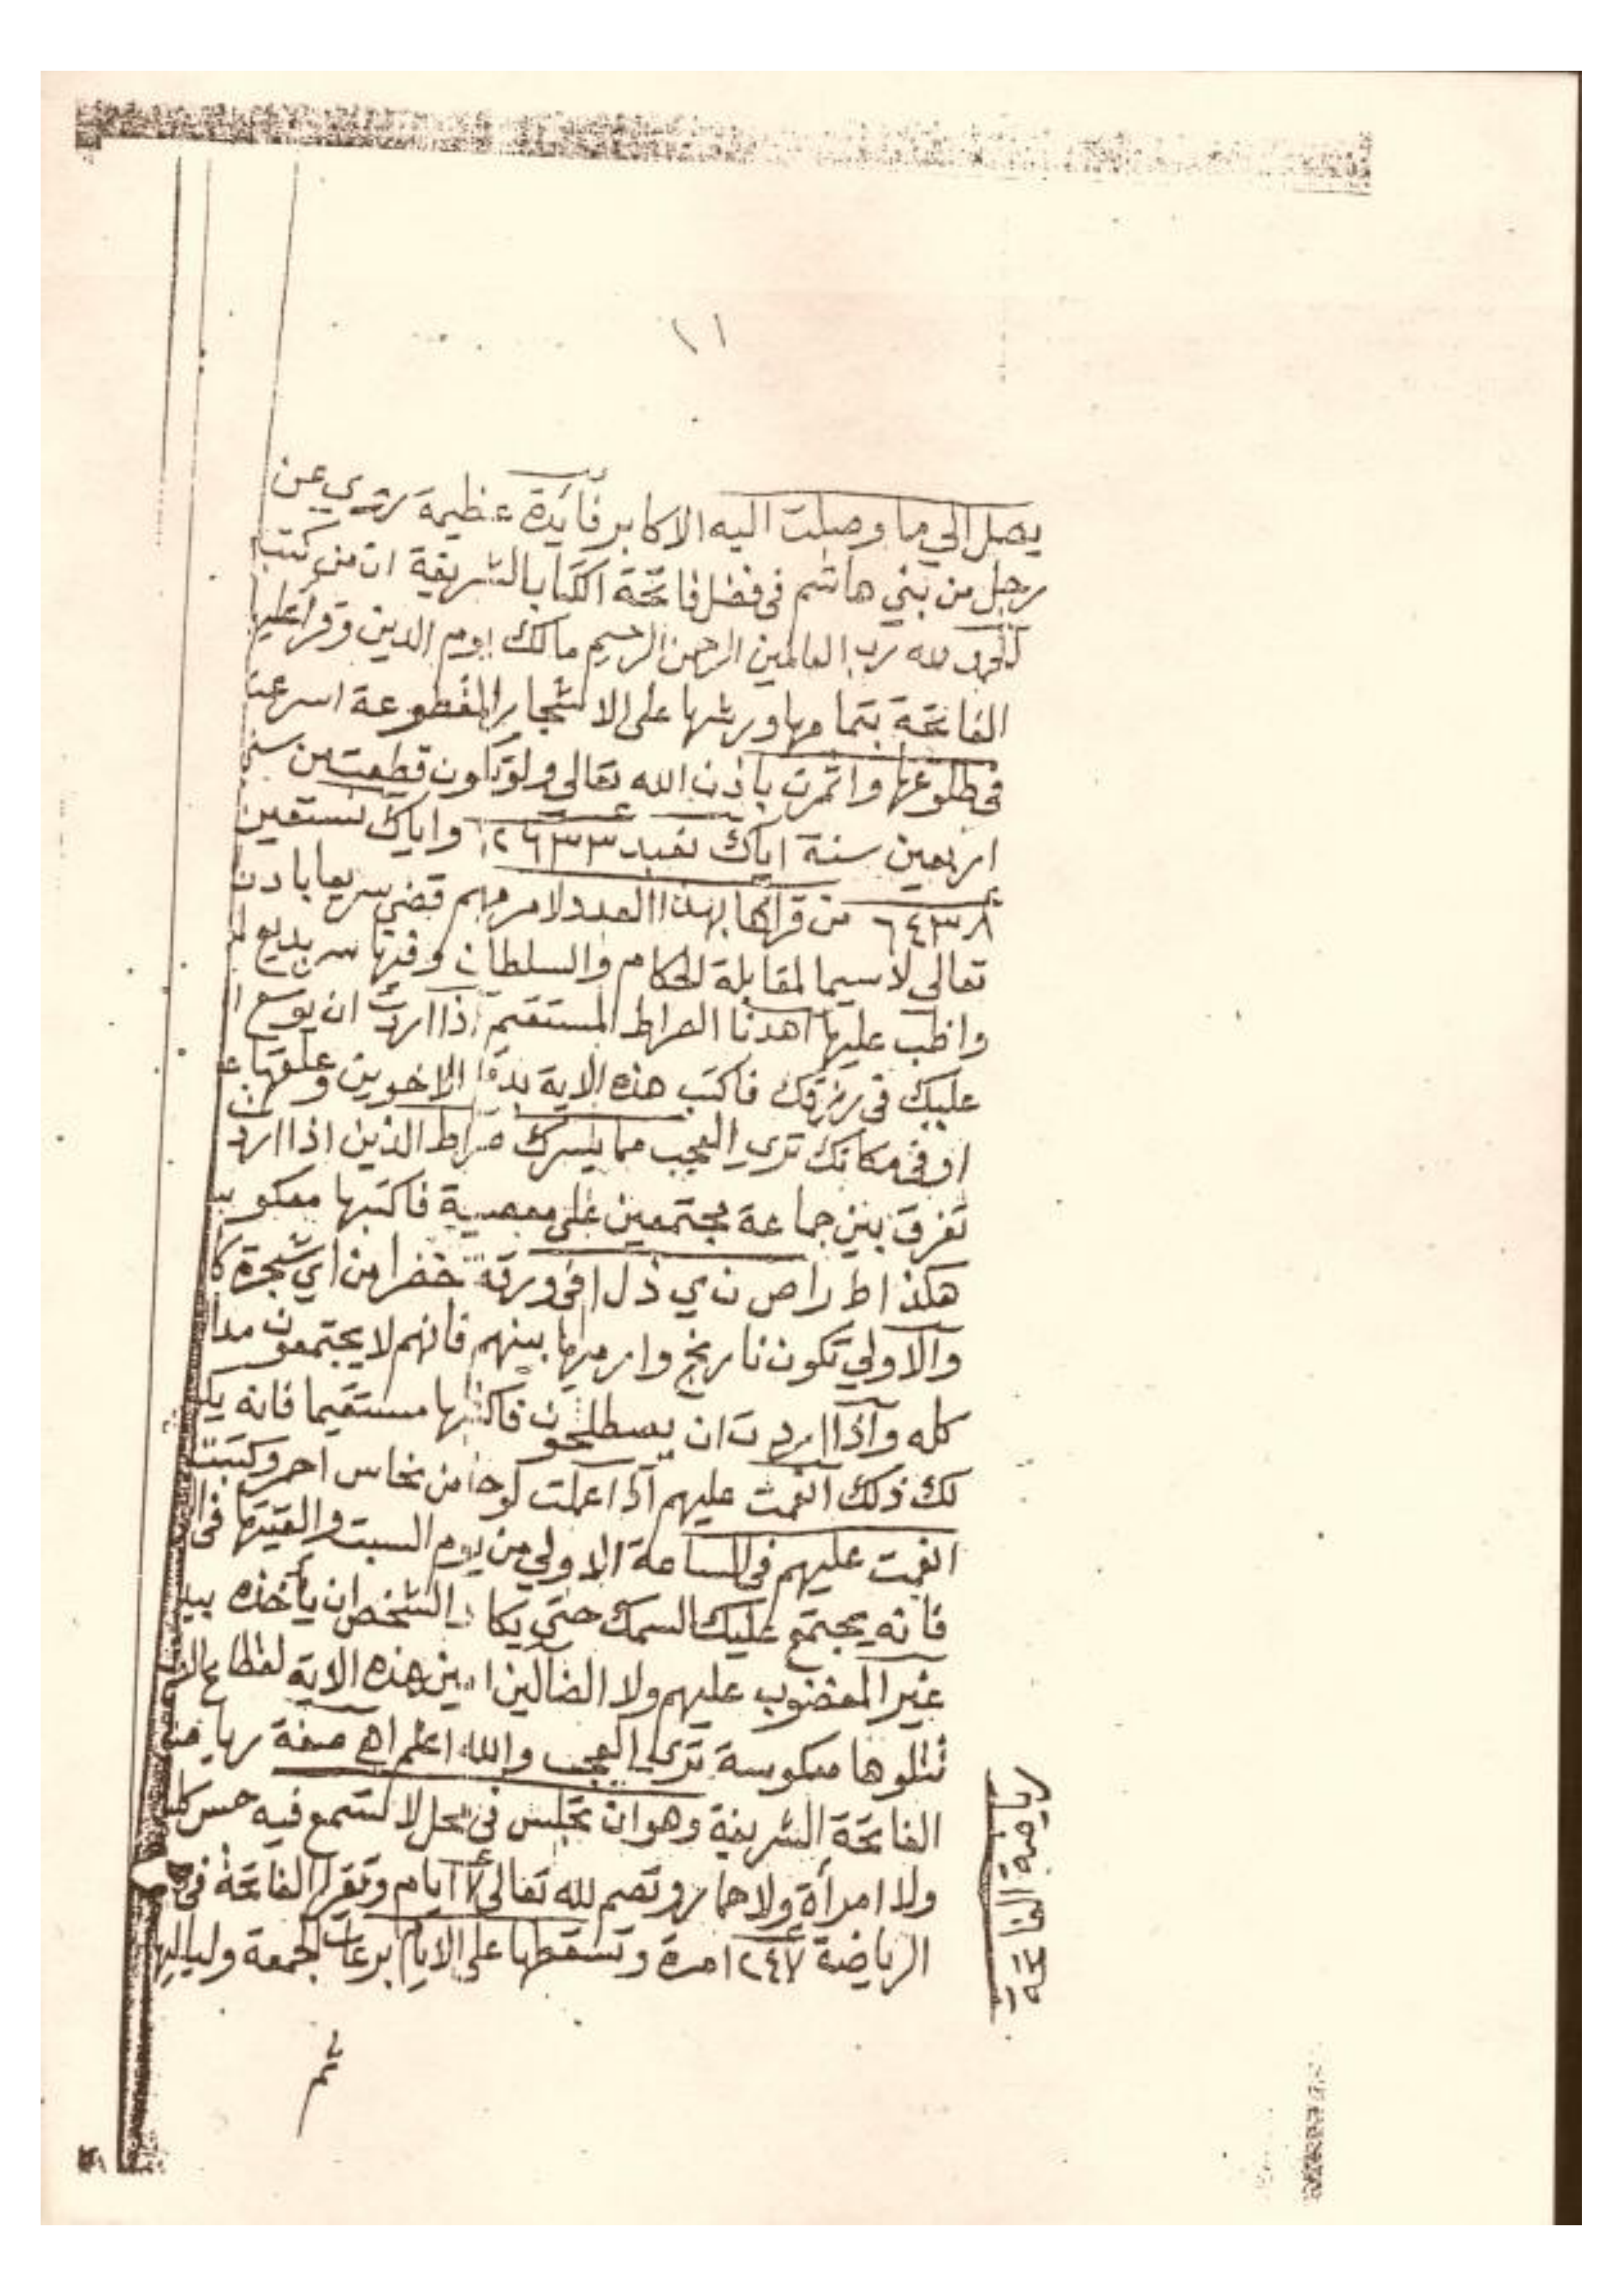 ١١
يصل الي ما وصلت اليه الاكابر فائدة عظيمة تروي عن
رجل من بني هاشم فى فضل فاتحة الكتاب الشريفة ان من كتب
الحمد لله رب العالمين الرحمن الرحيم مالك يوم الدين وقرا عليها
الفاتحة بتمامها ورشها على الاشجار المقطوعة اسرعت
فى طلوعها واثمرت باذن الله تعالى ولو تكون قطعت من
اربعين سنة اياك نعبد واياك نستعين
٦٤٣٨ من قراها بهذا العدد لامر مهم قضي سريعا باذن
تعالى لاسيما لمقابلة الحكام والسلطان وفيها سر بديع
واظب عليها اهدنا الصراط المستقيم اذا اردت ان يوسع
عليك فى رزقك فاكتب هذه الاية بدم الاخوين وعلقها
او فى مكانك تري العجب مما يسرك صراط الذين اذا ارد
تفرق بين جماعة مجتمعين على معصية فاكتبها معكو
هكذا ط ر ا ص ن ي ذ ل ا فى ورقة خضرا من اي شجرة كا
والاولي تكون نارنج وارميها بينهم فانهم لا يجتمعون
كله واذا اردت ان يصطلحون فاكتبها مستقيما فانه يك
لك ذلك انعمت عليهم اذا عملت لوحا من نحاس احمر وكتبت
انعمت عليهم فى الساعة الاولي من يوم السبت والقيتها فى
فانه يجتمع عليك السمك حتي يكاد الشخص ان يأخذه بيد
غير المغضوب عليهم ولا الضالين امين هذه الاية
تتلوها معكوسة تري العجب والله اعلم اهـ صفة رياضة
الفاتحة الشريفة وهو ان تجلس فى محل لا تسمع فيه حس كلب
ولا امرأة ولا حمار وتصم لله تعالى ٧ ايام وتقرا الفاتحة فى
الرياضة ١٢٤٧ مرة وتسقطها على الايام لجمعة ولياليها
رياضة الفاتحة